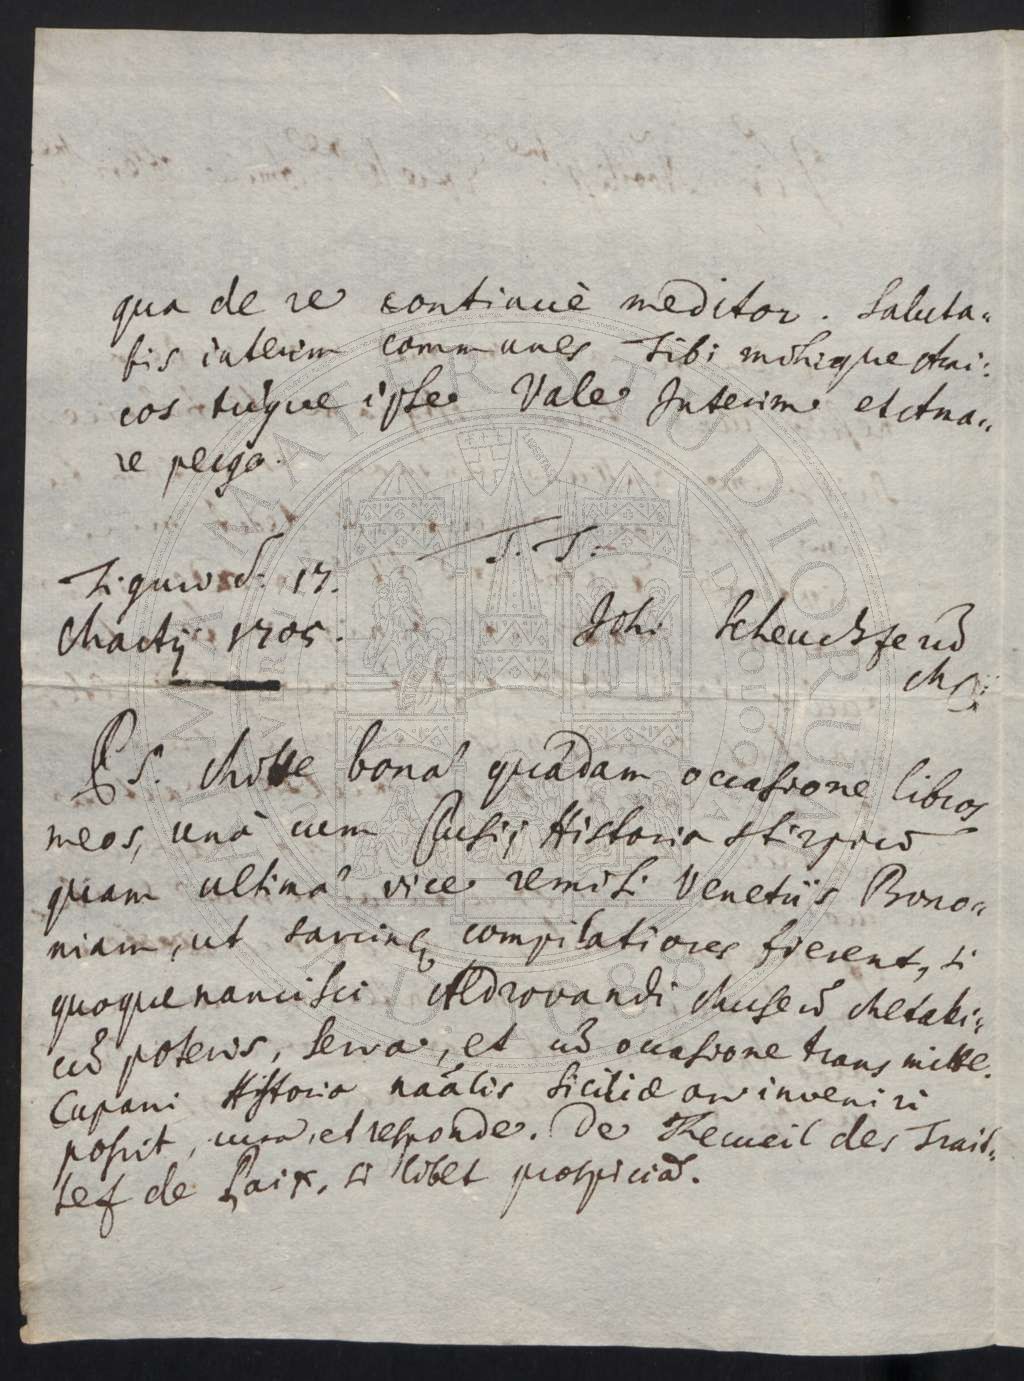 qua de re continuè meditor. Saluta=
bis interim communes Tibi mihique Ami=
cos tuque ipse Vale Interim et Ama=
re perge.
T. T.
Tiguro d. 17.
Martij 1705.
Joh. Scheuchzerũ
MD.
PS. Mitte bonâ quâdam occasione libros
meos, unà cum Historia stirpiũ
quam ultimâ vice remisi Venetiis Bono=
niam, ut sarcinę compilatiores fierent, si
quoque nancisci Aldrovandi Museũ Metalli=
cũ poteris, serva, et cũ occasione transmitte.
Cupani Historia nãalis Siciliæ an inveniri
possit, cura, et responde. De Recueil des Trait=
tes de Paix, si libet prospiciã.